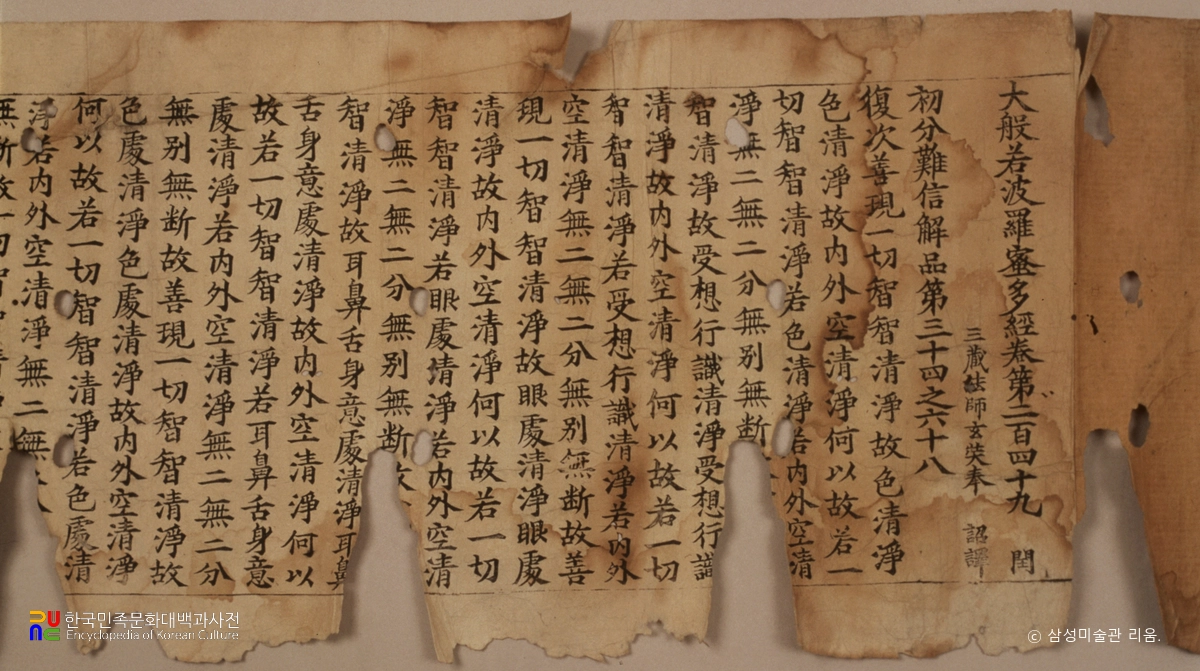 大般若波羅蜜多經卷第二百四十九 閏
三藏法師玄奘奉 詔譯
初分難信解品第三十四之六十八
復次善現一切智智清淨故色清淨
色清淨故内外空清淨何以故若一
切智智清淨若色清淨若内外空清
淨無二無二分無别無断
智清淨故受想行識清淨受想行識
清淨故内外空清淨何以故若一切
智智清淨若受想行識清淨若内外
空清淨無二無二分無别無断故善
現一切智智清淨故眼處清淨眼處
清淨故内外空清淨何以故若一切
智智清淨若眼處清淨若内外空清
淨無二無二分無别無断
智清淨故耳鼻舌身意處清淨耳鼻
舌身意處清淨故内外空清淨何以
故若一切智智清淨若耳鼻舌身意
處清淨若内外空清淨無二無二分
無别無断故善現一切智智清淨故
色處清淨色處清淨故内外空清淨
何以故若一切智智清淨若色處清
淨若内外空清淨無二無
한국민족문화대백과사전
Encyclopedia of Korean Culture
© 삼성미술관 리움.